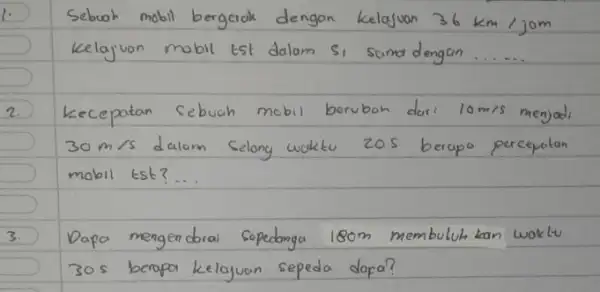 1. Sebuah mobil bergerak dengan kelajuan 36 km / jam
kelajuan mobil tst dalam SI sama dengan ......
2. kecepatan sebuah mobil berubah dari 10 m/s menjadi
30 m/s dalam selang waktu 20 s berapa percepatan
mobil tst? ...
3. Dapa mengendarai sepedanya 180 m membutuhkan waktu
30 s berapa kelajuan sepeda dapa?